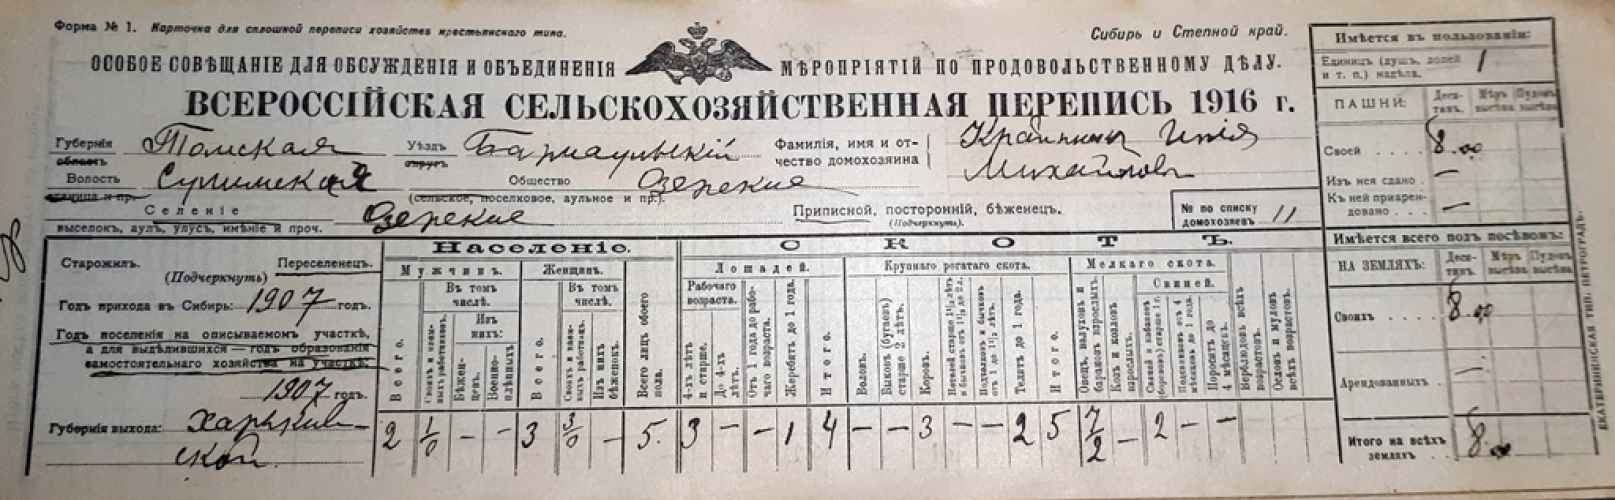 Форма № 1. Карточка для сплошной переписи хозяйствъ крестьянскаго типа.
Сибирь и Степной край.
ОСОБОЕ СОВѢЩАНІЕ ДЛЯ ОБСУЖДЕНІЯ И ОБЪЕДИНЕНІЯ МѢРОПРІЯТІЙ ПО ПРОДОВОЛЬСТВЕННОМУ ДѢЛУ.
ВСЕРОССІЙСКАЯ СЕЛЬСКОХОЗЯЙСТВЕННАЯ ПЕРЕПИСЬ 1916 г.
Губернія область Томская Уѣздъ округъ Барнаульскій Фамилія, имя и отчество домохозяина
Михайловъ
Волость Общество Озерские
(сельское, поселковое, аульное и пр.).
Селеніе Озерские Приписной, посторонній, бѣженецъ.
выселокъ, аулъ, улусъ, имѣніе и проч. (Подчеркнуть).
№ по списку домохозяевъ 11
Старожилъ. Переселенецъ.
(Подчеркнуть)
Годъ прихода въ Сибирь: 1907 годъ.
Годъ поселенія на описываемомъ участкѣ,
а для выдѣлившихся — годъ образованія
самостоятельнаго хозяйства на участкѣ:
1907 годъ.
Губернія выхода: Харьков-
ской
Населеніе.
Мужчинъ. Женщинъ. Всего лицъ обоего пола.
Всего. Въ томъ числѣ. Своихъ и наемныхъ работниковъ. Изъ нихъ: Бѣженцевъ. Военно-плѣнныхъ
Всего. Въ томъ числѣ. Своихъ и наемныхъ работниковъ. Изъ нихъ бѣженокъ.
2 1/0 – – 3 3/0 – 5.
СКОТЪ.
Лошадей. Крупнаго рогатаго скота. Мелкаго скота.
Рабочаго возраста. 4-хъ лѣтъ и старше. До 4-хъ лѣтъ. Отъ 1 года до рабочаго возраста. Жеребятъ до 1 года. Итого.
Воловъ. Быковъ (бугаевъ) старше 2 лѣтъ. Коровъ. Нетелей старше 1½ лѣтъ и бычковъ отъ 1½ до 2 л. Подтелковъ и бычковъ отъ 1 до 1½ лѣтъ. Телятъ до 1 года. Итого
Овецъ, валуховъ и барановъ взрослыхъ. Козъ и козловъ взрослыхъ. Свиней. Свиней и кабановъ (борововъ) старше 1 г. Подсвинковъ отъ 4 мѣсяцевъ до 1 года. Поросятъ до 4 мѣсяцевъ.
Верблюдовъ всѣхъ возрастовъ. Ословъ и муловъ всѣхъ возрастовъ.
3 – – 1 4 – – 3 – – 2 5 7/2 – 2 – –
Имѣется въ пользованіи:
Единицъ (душъ, долей и т. п.) надѣла. 1
ПАШНИ: Десятинъ. Мѣръ высѣва. Пудовъ высѣва.
Своей 8.00
Изъ нея сдано —
Къ ней приарендовано —
Имѣется всего подъ посѣвомъ:
НА ЗЕМЛЯХЪ: Десятинъ. Мѣръ высѣва. Пудовъ высѣва.
Своихъ 8.00
Арендованныхъ —
Итого на всѣхъ земляхъ 8.00
ЕКАТЕРИНИНСКАЯ ТИП. ПЕТРОГРАДЪ.